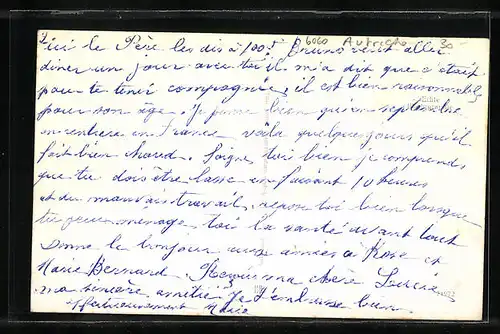 6060 Autriche 30-
ici le Père les dis à 1005 Bruno veut aller
diner un jour avec toi il m'a dit que c'était
pour te tenir compagnie, il est bien raisonnable
pour son âge. Je pense bien qu'en septembre
on rentrera en France voila quelques jours qu'il
fait bien chaud. Soigne toi bien je comprends
que tu dois être lasse en faisant 10 heures
et du mauvais travail, repose toi bien lorsque
tu peux menage toi la santé avant tout
Donne le bonjour aux amies à Rose et
Marie Bernard. Reçois ma chère Lucie
ma sincère amitié Je t'embrasse bien
affectueusement Marie